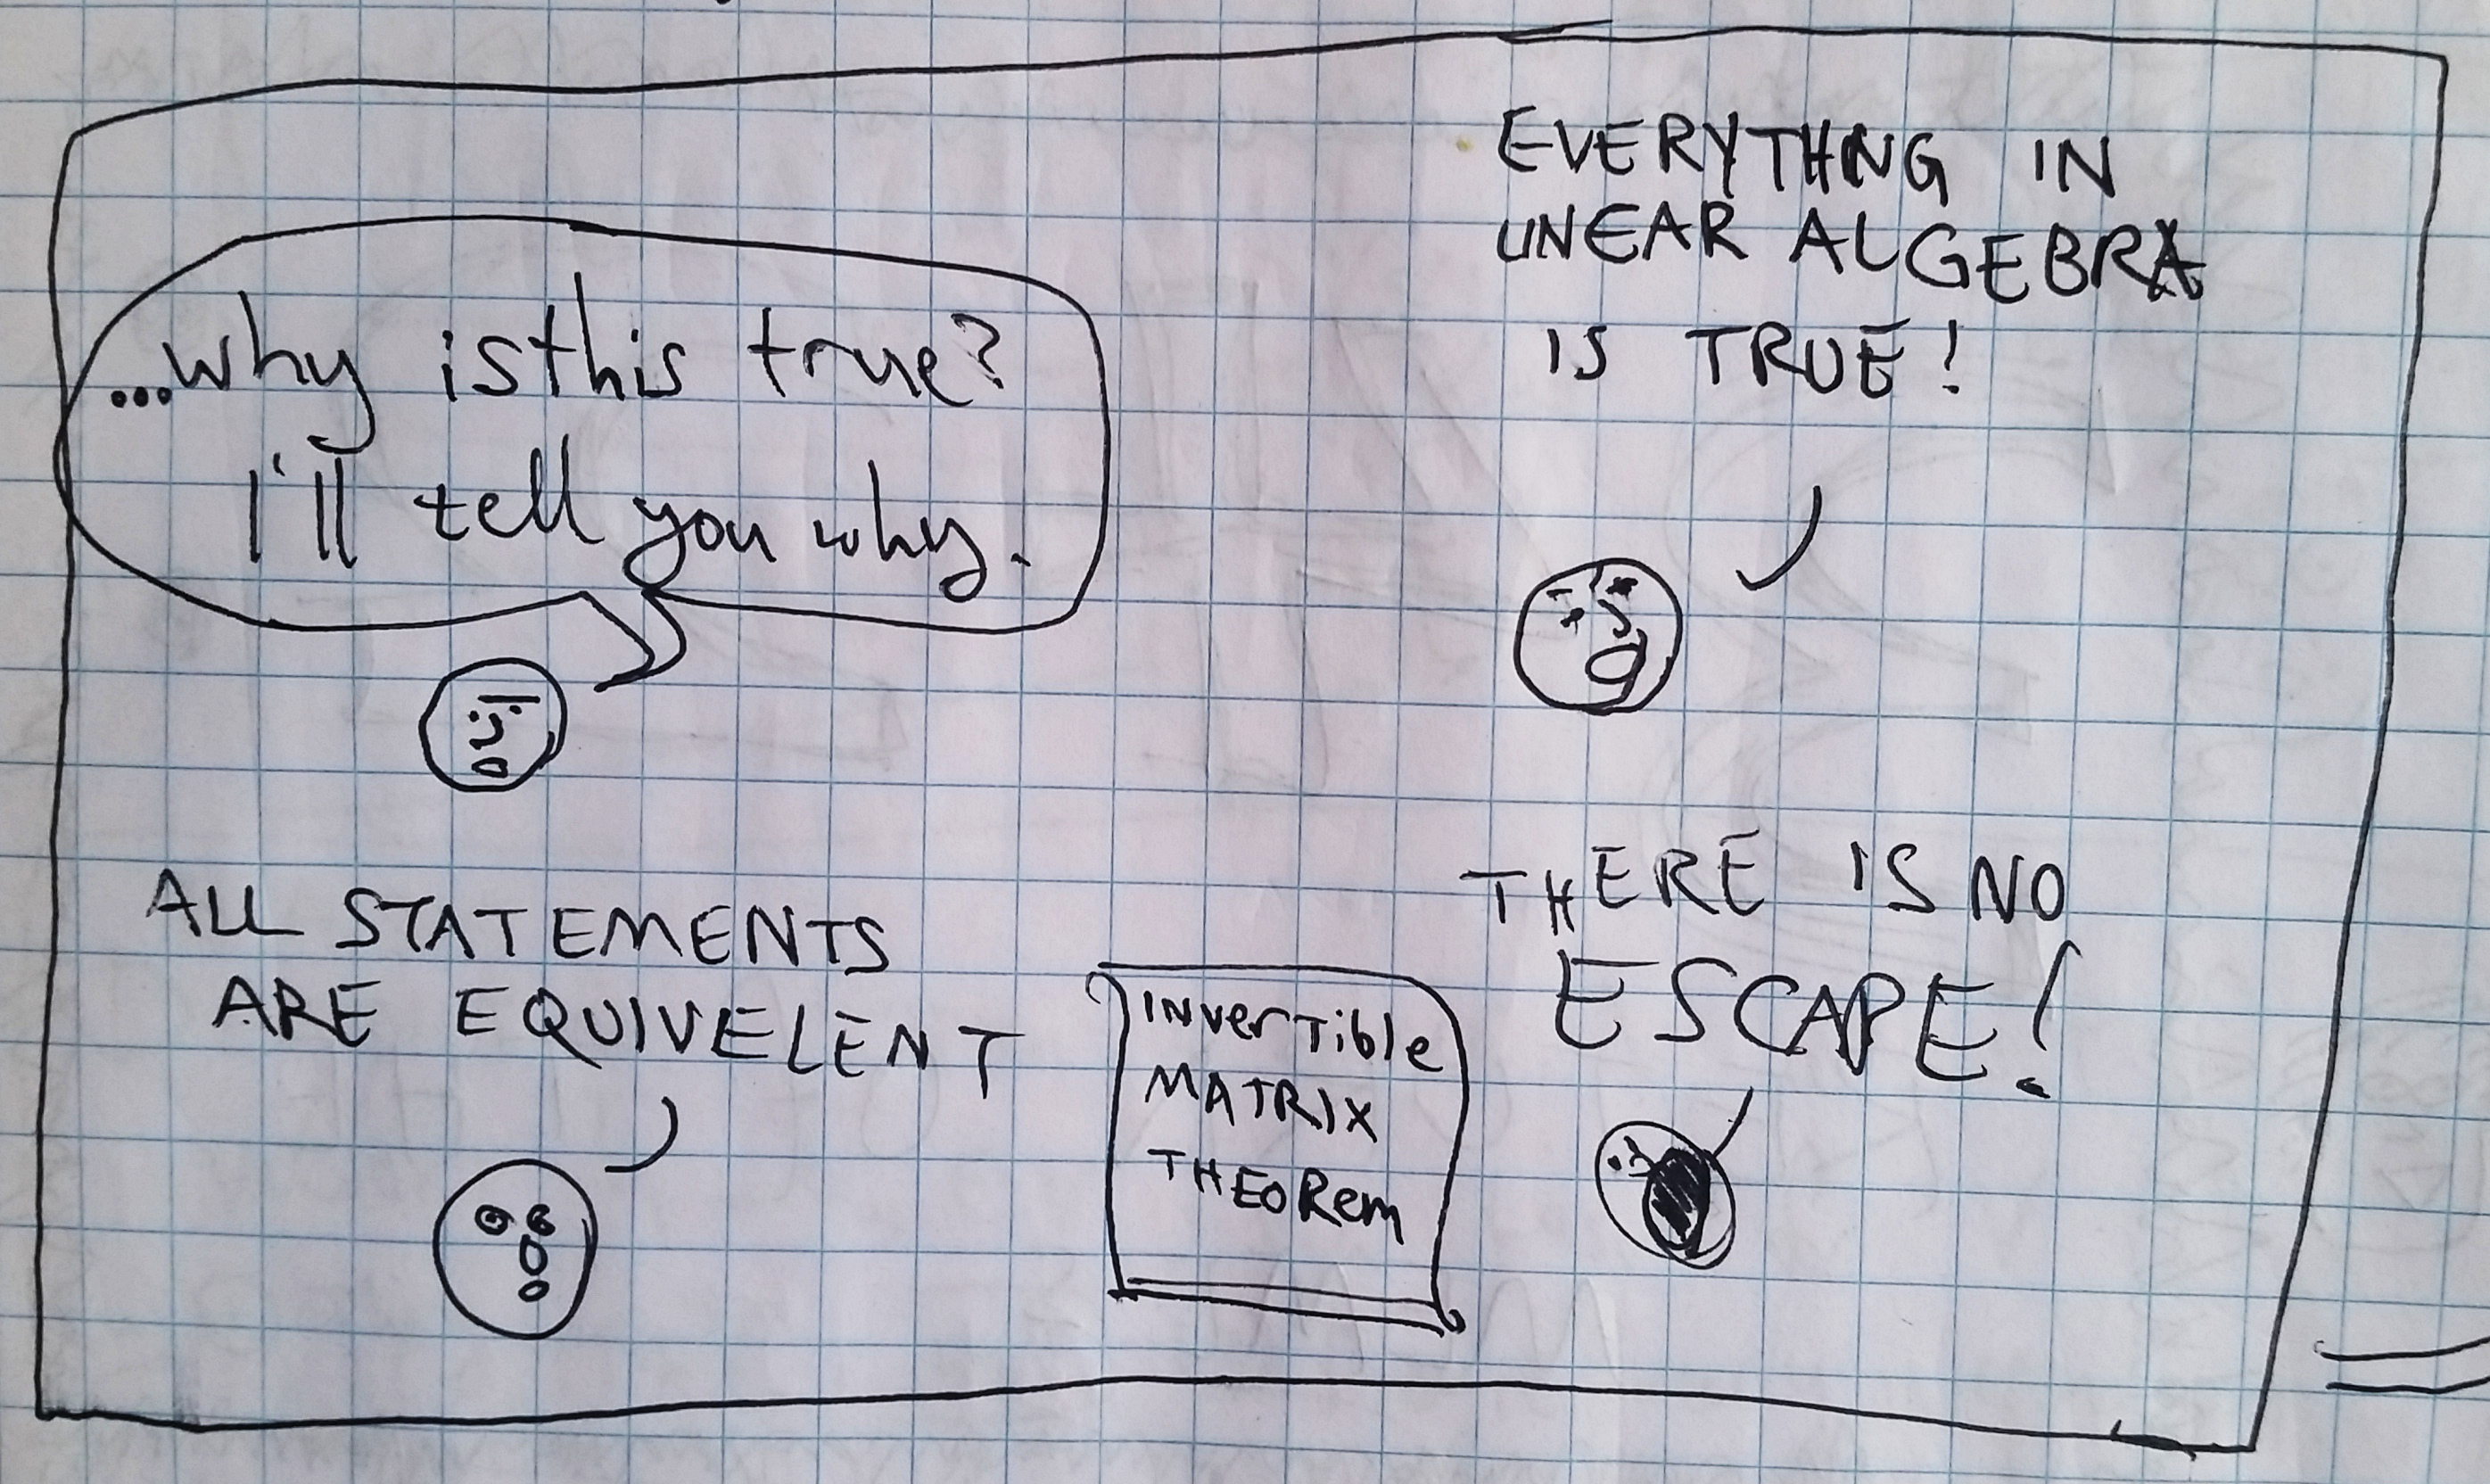 ...why is this true?
I'll tell you why.
EVERYTHING IN
LINEAR ALGEBRA
IS TRUE!
ALL STATEMENTS
ARE EQUIVELENT
INVERTIBLE
MATRIX
THEOREM
THERE IS NO
ESCAPE!